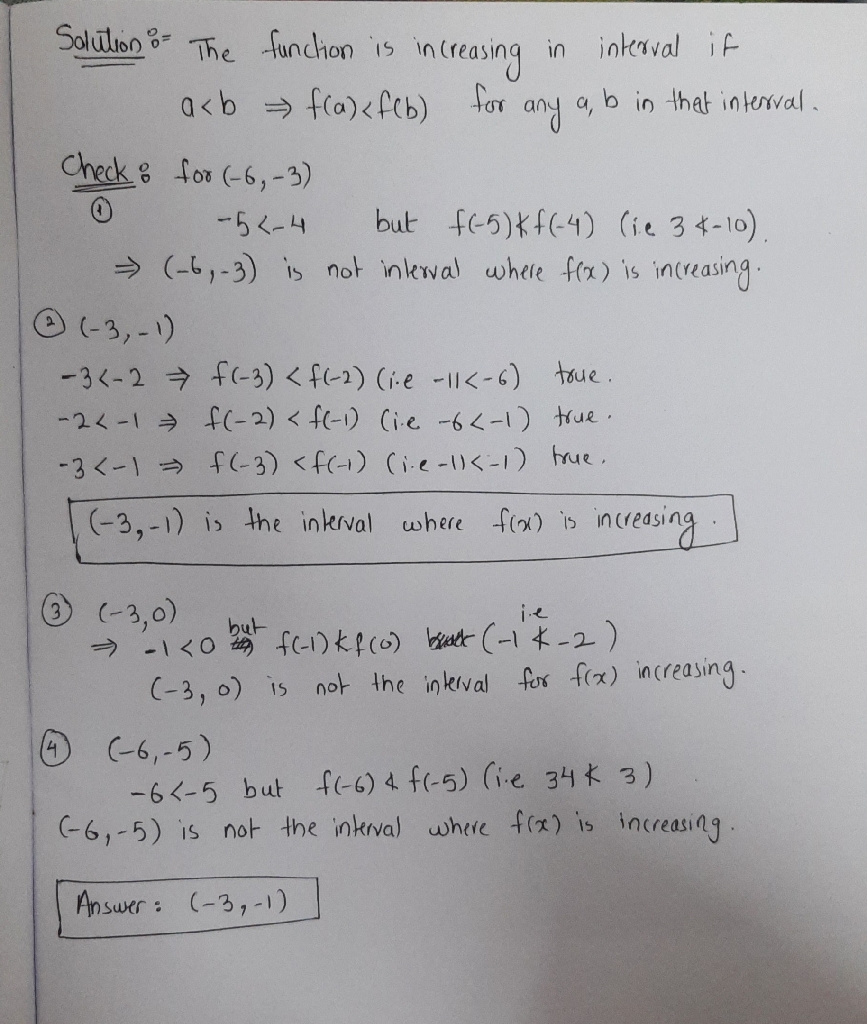 Solution :- The function is increasing in interval if
a<b ⇒ f(a)<f(b) for any a, b in that interval.
Check : for (-6, -3)
① -5<-4 but f(-5)≮f(-4) (i.e 3 ≮ -10).
⇒ (-6, -3) is not interval where f(x) is increasing.
② (-3, -1)
-3<-2 ⇒ f(-3) < f(-2) (i.e -11<-6) true.
-2<-1 ⇒ f(-2) < f(-1) (i.e -6<-1) true.
-3<-1 ⇒ f(-3) <f(-1) (i.e -11<-1) true.
(-3, -1) is the interval where f(x) is increasing.
③ (-3, 0)
⇒ -1<0 but f(-1)≮f(0) i.e (-1 ≮ -2)
(-3, 0) is not the interval for f(x) increasing.
④ (-6, -5)
-6<-5 but f(-6) ≮ f(-5) (i.e 34 ≮ 3)
(-6, -5) is not the interval where f(x) is increasing.
Answer : (-3, -1)